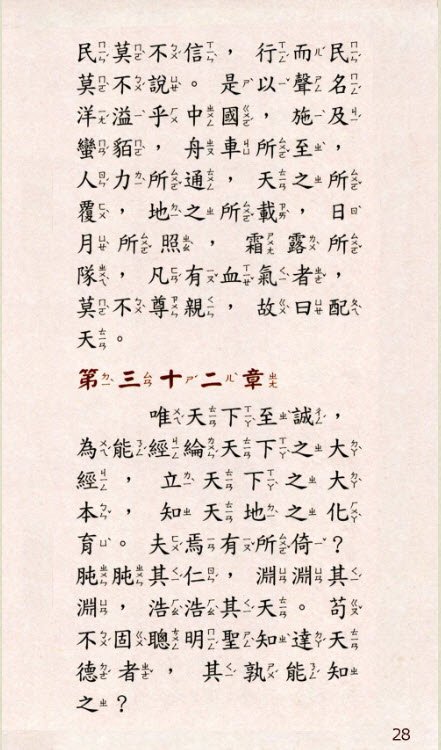 民莫不信，行而民
莫不說。是以聲名
洋溢乎中國，施及
蠻貊，舟車所至，
人力所通，天之所
覆，地之所載，日
月所照，霜露所
隊，凡有血氣者，
莫不尊親，故曰配
天。
第三十二章
唯天下至誠，
為能經綸天下之大
經，立天下之大
本，知天地之化
育。夫焉有所倚？
肫肫其仁，淵淵其
淵，浩浩其天。苟
不固聰明聖知達天
德者，其孰能知
之？
28